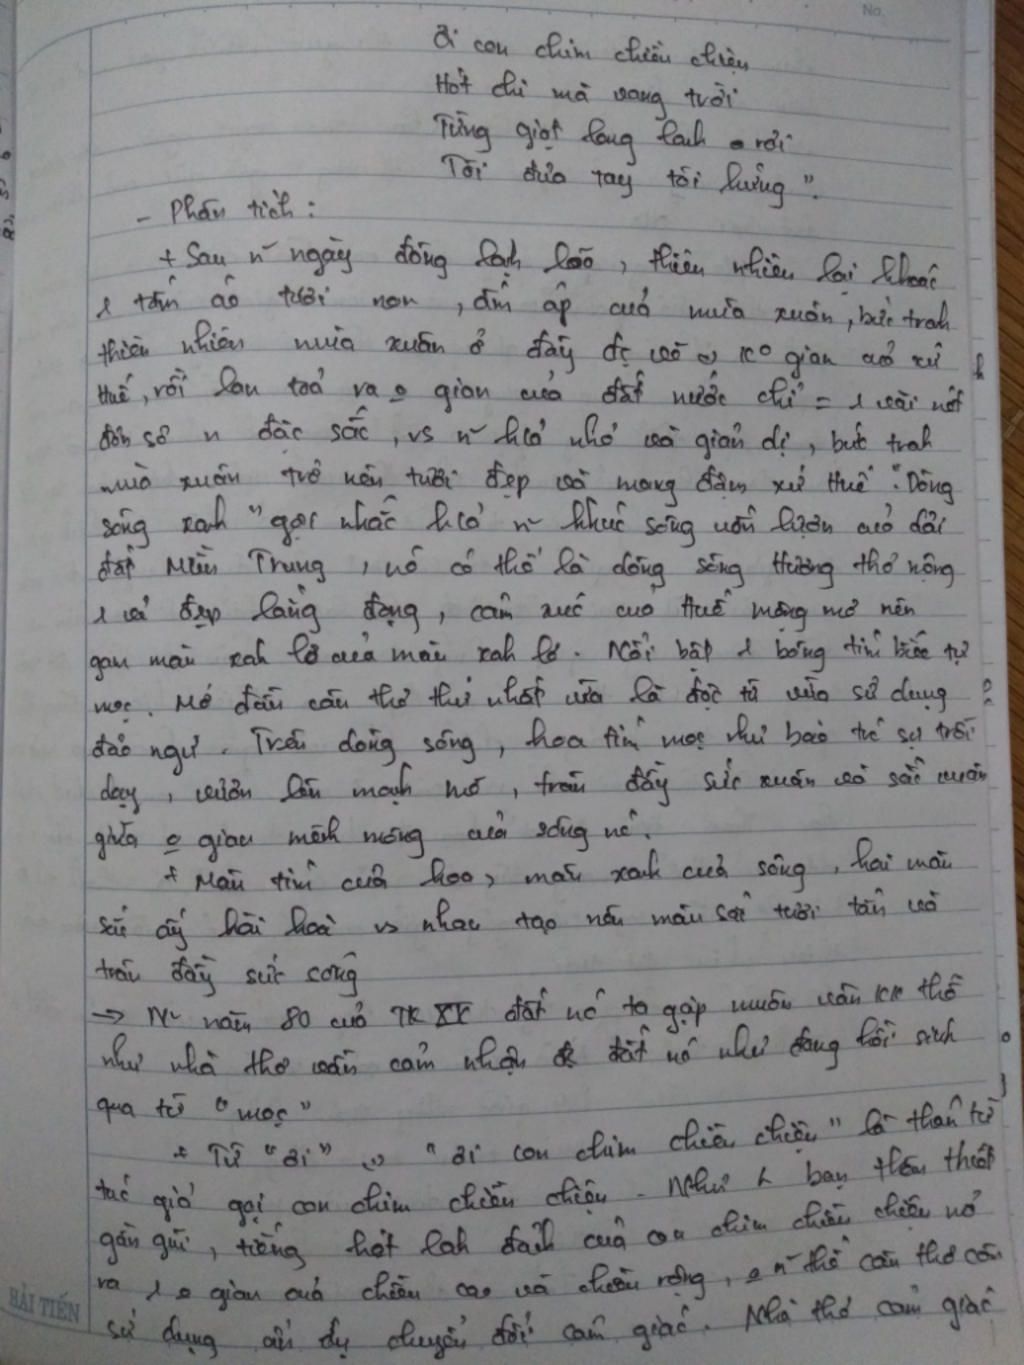 No.
Ơi con chim chiền chiện
Hót chi mà vang trời
Từng giọt long lanh rơi
Tôi đưa tay tôi hứng".
- Phân tích:
+ Sau n~ ngày đông lạnh lẽo, thiên nhiên lại khoác
1 tấm áo tươi non, ấm áp của mùa xuân, bức trah
thiên nhiên mùa xuân ở đây đc vẽ ko gian của xứ
Huế, rồi lan toả ra gian của đất nước chỉ = 1 vài nét
đơn sơ n đặc sắc, vs n~ h/ả nhỏ và giản dị, bức trah
mùa xuân trở nên tươi đẹp và mang đậm xứ Huế. "Dòng
sông xanh" gợi nhắc h/ả n~ khúc sông uốn lượn của dải
đất Miền Trung, nó có thể là dòng sông Hương thơ mộng
1 vẻ đẹp lặng, cảm xúc của Huế mộng mơ nên
màu xah lơ của màu xah lơ. Nổi bật 1 bông tím biếc tự
mọc. Mở đầu câu thơ thứ nhất vừa là độc từ vừa sử dụng
đảo ngữ. Trên dòng sông, hoa tím mọc như báo trỗi
dạy, vươn lên mạnh mẽ, tràn đầy sức xuân và sắc xuân
giữa gian mênh mông của sông nc.
+ Màu tím của hoa, màu xanh của sông, hai màu
sắc ấy hài hoà vs nhau tạo nên màu sắc tươi tắn và
tràn đầy sức sống
-> N~ năm 80 của TK XX đất nc ta gặp muôn vàn khó
như nhà thơ vẫn cảm nhận đc đất nc như đang hồi sinh
qua từ "mọc"
+ Từ "ơi" "ơi con chim chiền chiện" là thán từ
tác giả gọi con chim chiền chiện. Như 1 bạn thân thiết
gần gũi, tiếng hót của con chim chiền chiện mở
ra 1 gian của chiều cao và chiều rộng, thế câu thơ còn
sử dụng ẩn dụ chuyển đổi cảm giác. Nhà thơ cảm giác
HẢI TIẾN